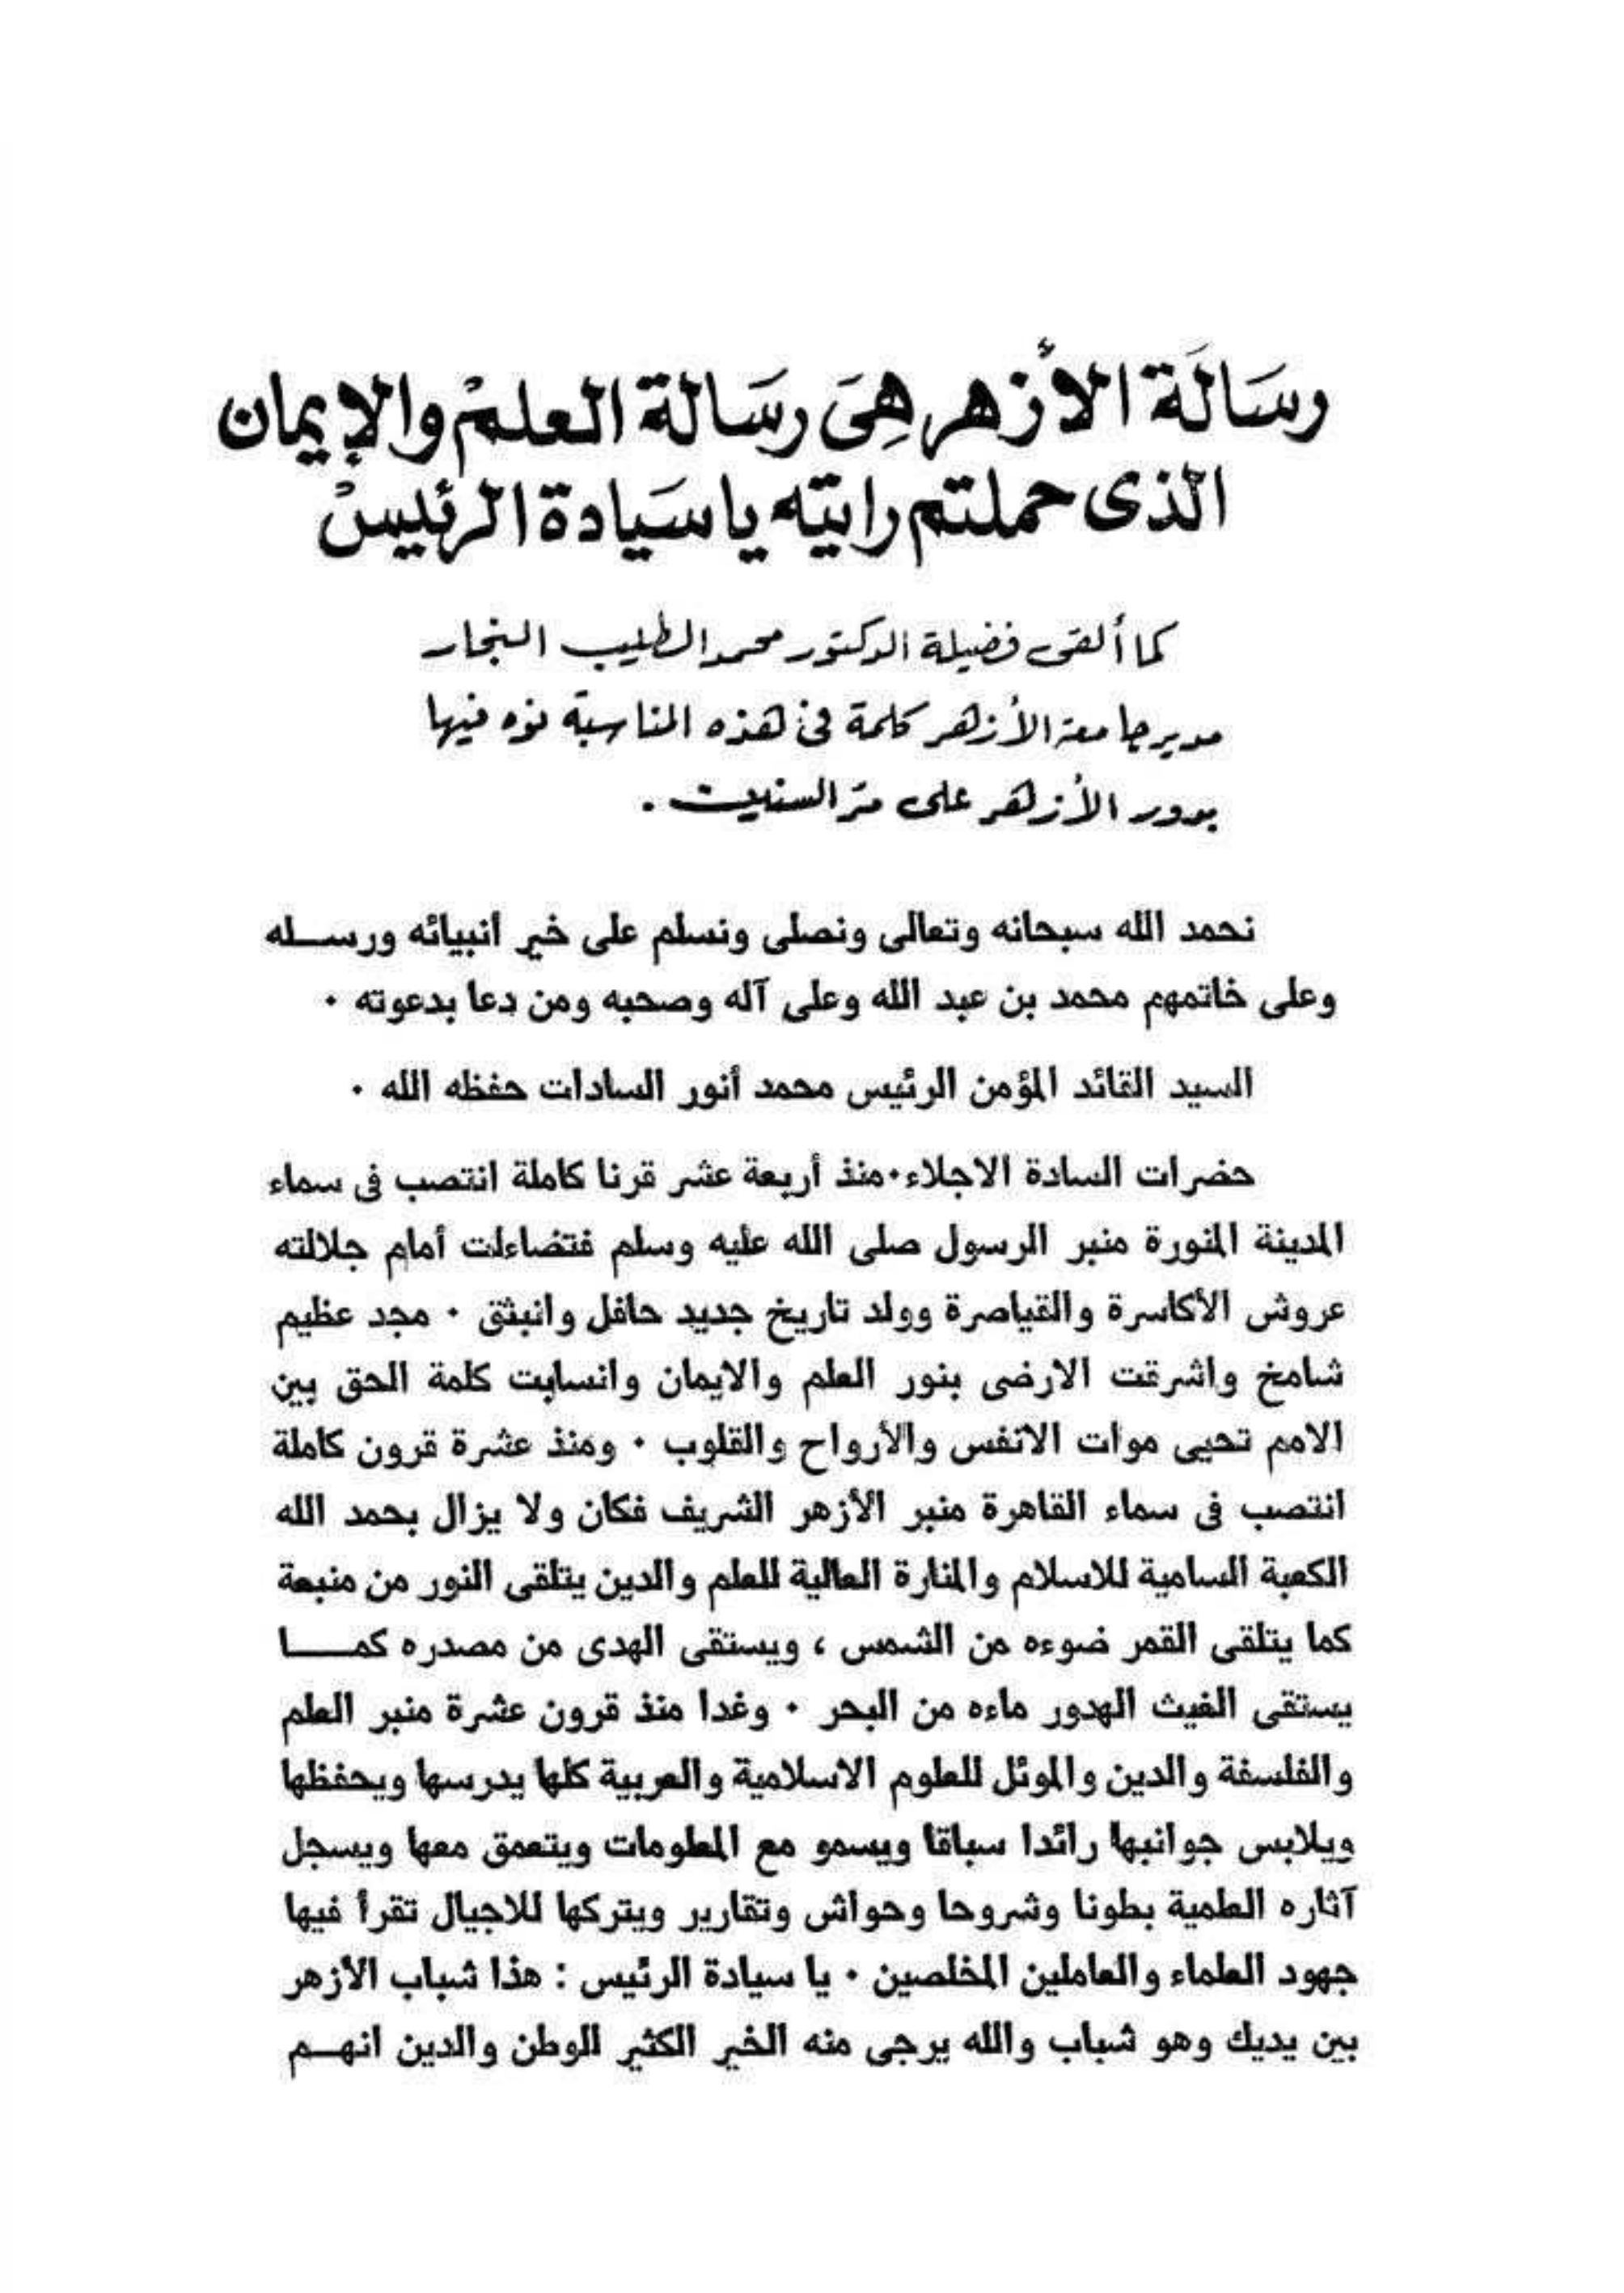 رسَالَة الأزهر هِىَ رسَالة العلمْ والإيمان
الذى حملتم رايته يا سَيادة الرئيسْ
كما ألقى فضيلة الدكتور محمد الطيب النجار
مدير جامعة الأزهر كلمة فى هذه المناسبة نوه فيها
بدور الأزهر على مرّ السنين .
نحمد الله سبحانه وتعالى ونصلى ونسلم على خير انبيائه ورسـله
وعلى خاتمهم محمد بن عبد الله وعلى آله وصحبه ومن دعا بدعوته ٠
السيد القائد المؤمن الرئيس محمد أنور السادات حفظه الله ٠
حضرات السادة الاجلاء٠منذ أربعة عشر قرنا كاملة انتصب فى سماء
المدينة المنورة منبر الرسول صلى الله عليه وسلم فتضاءلت أمام جلالته
عروش الأكاسرة والقياصرة وولد تاريخ جديد حافل وانبثق ٠ مجد عظيم
شامخ واشرقت الارضى بنور العلم والايمان وانسابت كلمة الحق بين
الامم تحيى موات الانفس والأرواح والقلوب ٠ ومنذ عشرة قرون كاملة
انتصب فى سماء القاهرة منبر الأزهر الشريف فكان ولا يزال بحمد الله
الكعبة السامية للاسلام والمنارة العالية للعلم والدين يتلقى النور من منبعة
كما يتلقى القمر ضوءه من الشمس ، ويستقى الهدى من مصدره كمــا
يستقى الغيث الهدور ماءه من البحر ٠ وغدا منذ قرون عشرة منبر العلم
والفلسفة والدين والموئل للعلوم الاسلامية والعربية كلها يدرسها ويحفظها
ويلابس جوانبها رائدا سباقا ويسمو مع المعلومات ويتعمق معها ويسجل
آثاره العلمية بطونا وشروحا وحواش وتقارير ويتركها للاجيال تقرأ فيها
جهود العلماء والعاملين المخلصين ٠ يا سيادة الرئيس : هذا شباب الأزهر
بين يديك وهو شباب والله يرجى منه الخير الكثير للوطن والدين انهـم